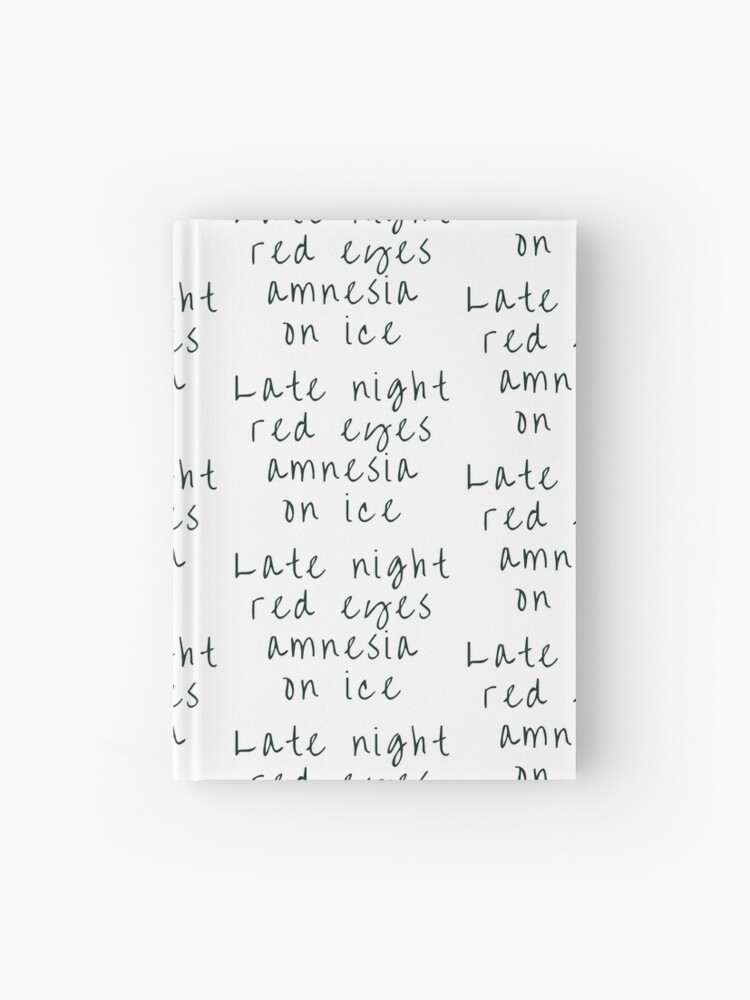 red eyes
amnesia
on ice
Late night
red eyes
amnesia
on ice
Late night
red eyes
amnesia
on ice
Late night
on
Late
red
amn
on
Late
red
amn
on
Late
red
amn
on